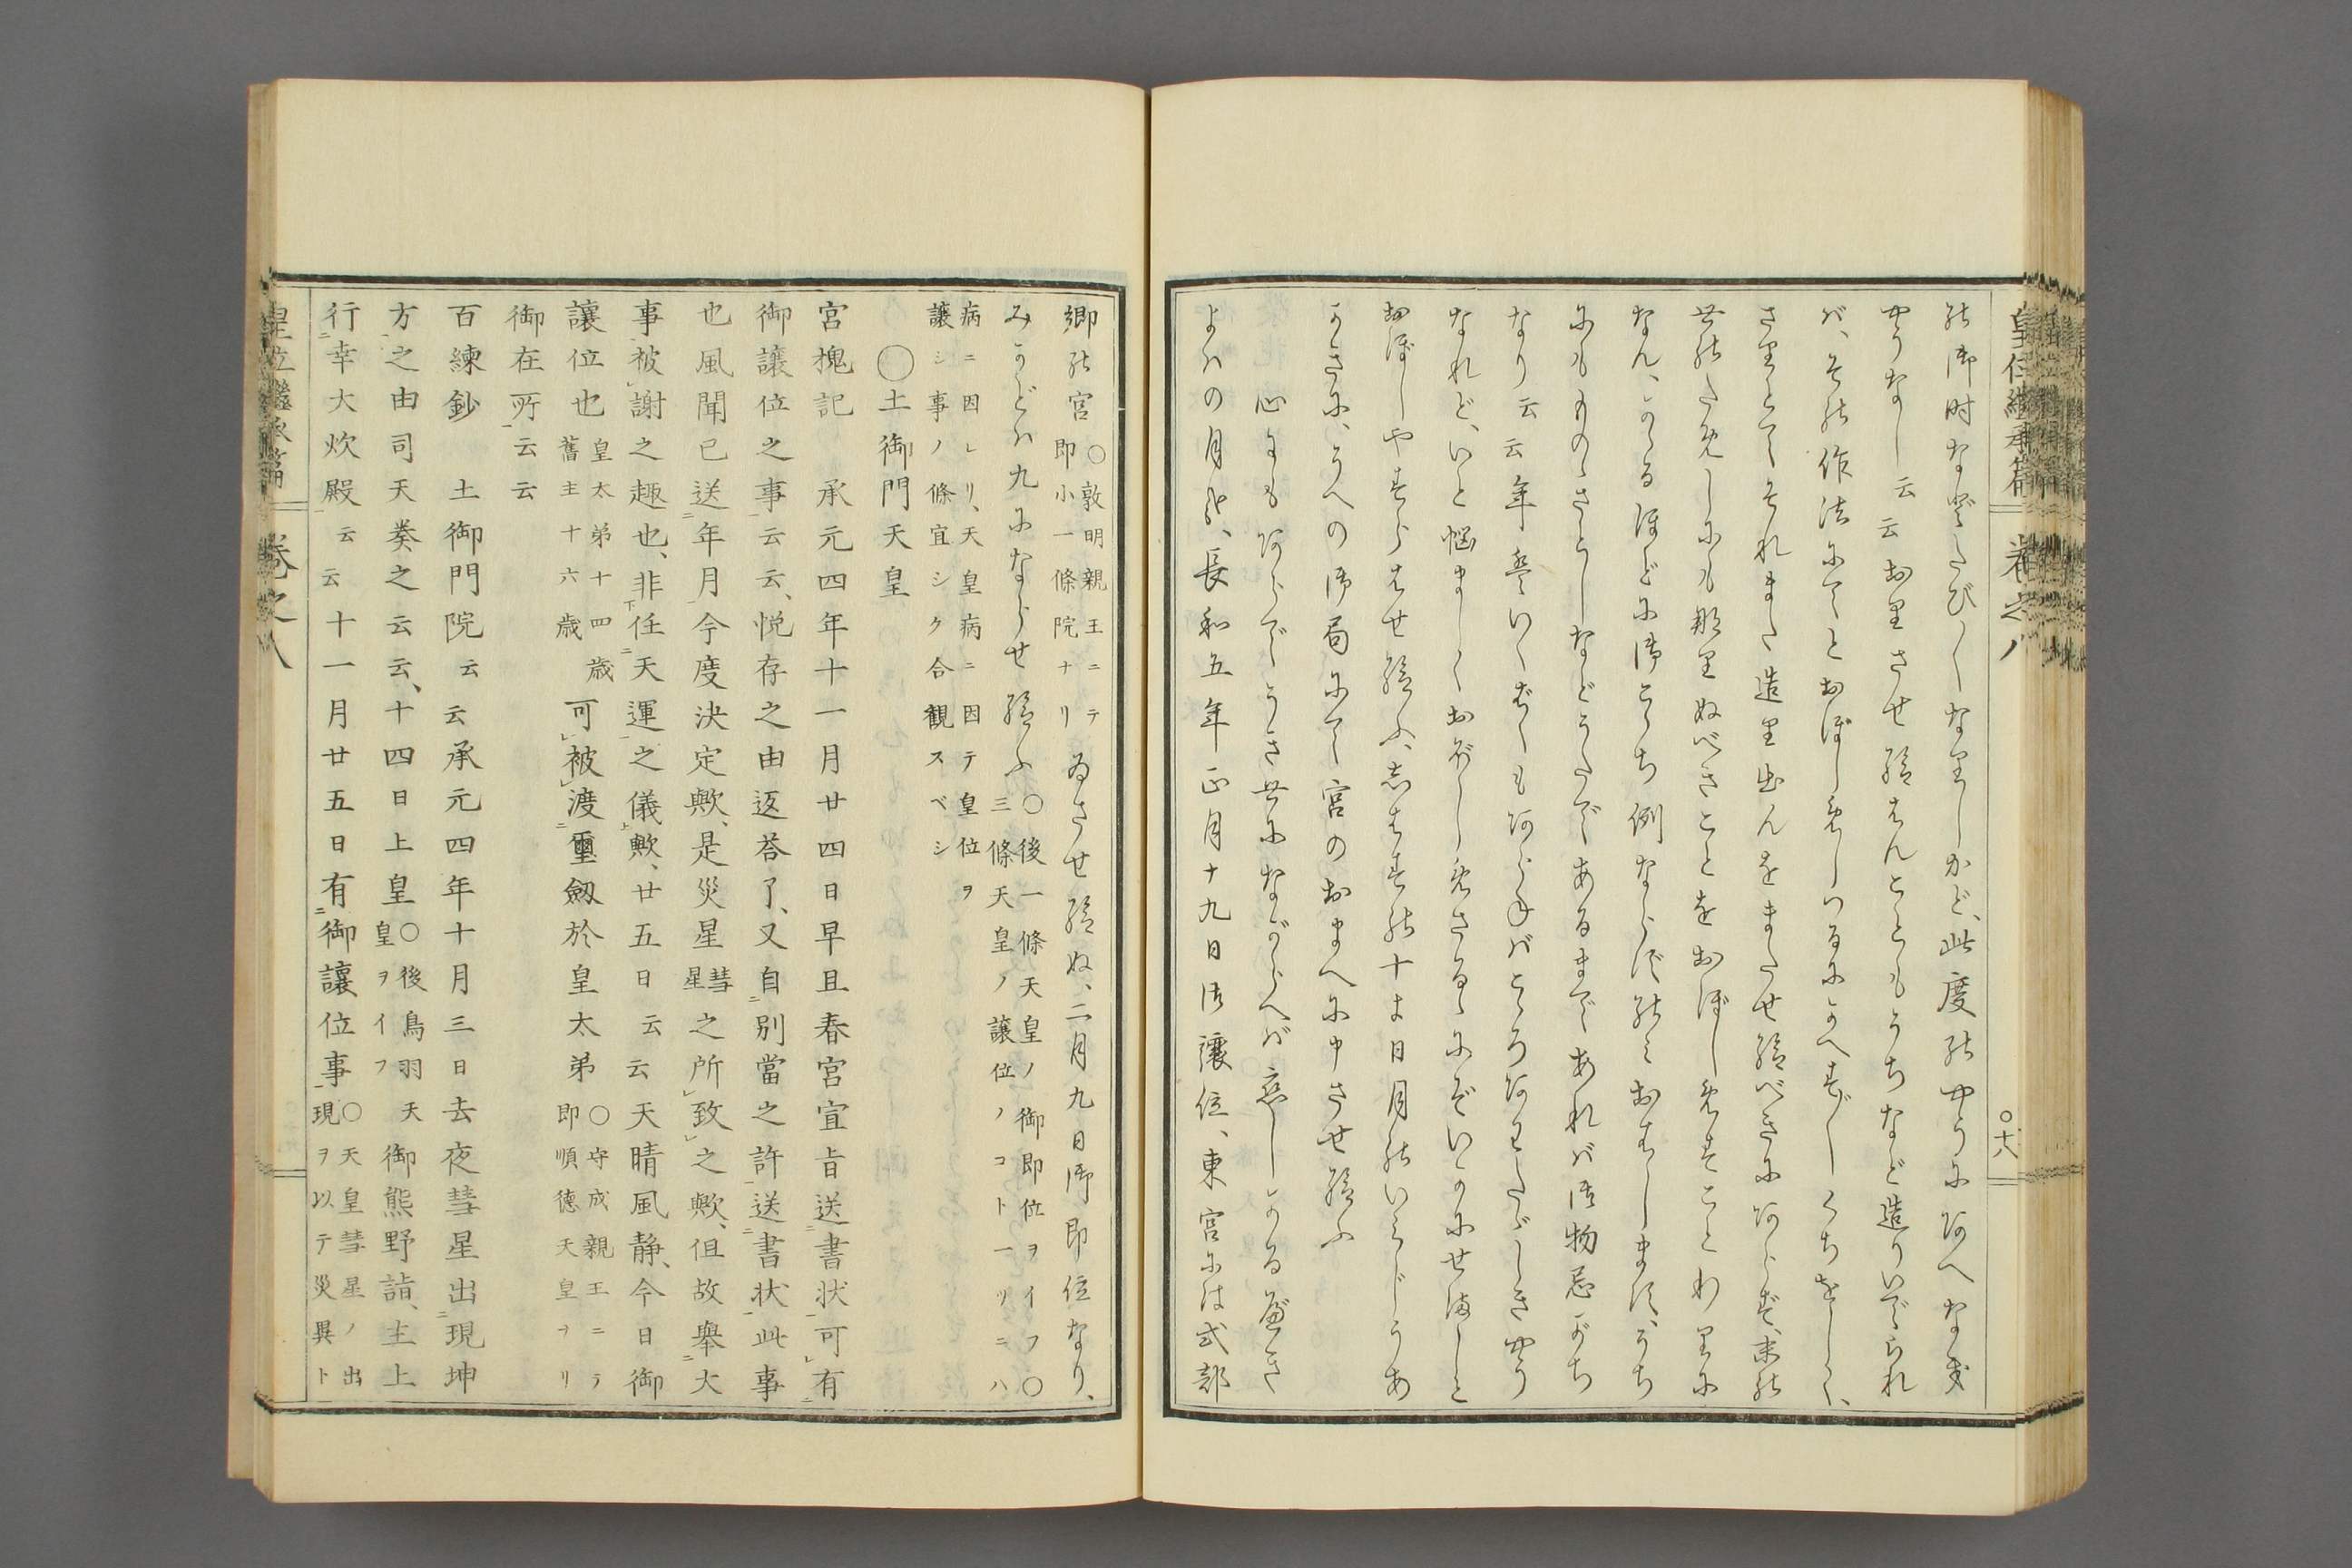 皇位繼承篇 卷之八 〇十八
の御時などたび〳〵なりしかど、此度のやうにあへなき
やうなし云云おりさせ給はんとてもうちなど造りいでられ
ば、その作法にてとおぼしめしつるにかへすがへすくちをしく、
さりとてそれまた造り出んをまたせ給べきにあらず、末の
世のためしにもなりぬべきことをおぼしめすことわりに
なん、かゝるほどに御こゝち例ならずのみおはします、うち
にもものゝさとしなどうたてあるまであれば御物忌がち
なり云云年号いくばくもあらねばこゝろあわたゞしきやう
なれど、いと悩ましくおぼしめさるゝにぞいかにせましと
おぼしやすらはせ給ふ、しはすの十よ日月のいみじうあ
かきに、うへの御局にて宮のおまへに申させ給ふ
心にもあらでうき世にながらへば恋しかるべき
よはの月哉、長和五年正月十九日御讓位、東宮には式部
卿の宮〇敦明親王ニテ即小一條院ナリゐさせ給ぬ、二月九日御即位なり、
みかどは九にならせ給ふ〇後一條天皇ノ御即位ヲイフ〇三條天皇ノ讓位ノコト一ツニハ
病ニ因レリ、天皇病ニ因テ皇位ヲ讓シ事ノ條宜シク合観スベシ
〇土御門天皇
宮槐記 承元四年十一月廿四日早旦春宮宣旨送書状可有
御讓位之事云云、悦存之由返答了、又自別當之許送書状此事
也風聞已送年月今度決定歟、是災星彗星之所致之歟、但故擧大
事被謝之趣也、非任天運之儀歟、廿五日云云天晴風静、今日御
讓位也皇太弟十四歳舊主十六歳可被渡璽劔於皇太弟〇守成親王ニテ即順徳天皇ナリ
御在所云云
百練鈔 土御門院云云承元四年十月三日去夜彗星出現坤
方之由司天奏之云云、十四日上皇〇後鳥羽天皇ヲイフ御熊野詣、主上
行幸大炊殿云云十一月廿五日有御讓位事〇天皇彗星ノ出現ヲ以テ災異ト
皇位繼承篇 卷之八